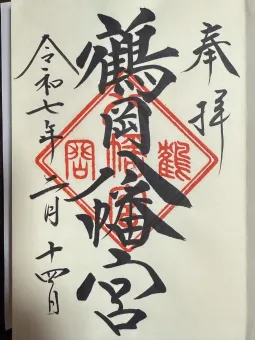 奉拝
鶴岡八幡宮
令和七年二月十四日
鶴
岡